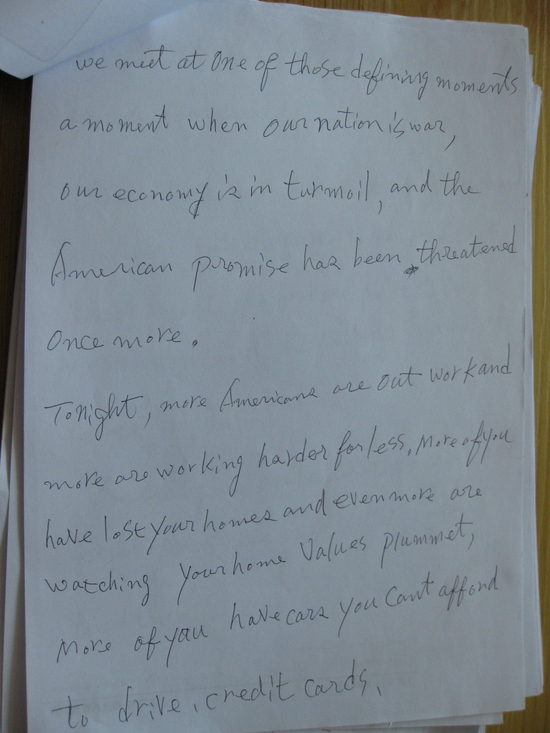 we meet at one of those defining moments
a moment when our nation is war,
our economy is in turmoil, and the
American promise has been threatened
once more.
Tonight, more Americans are out work and
more are working harder for less. More of you
have lost your homes and even more are
watching your home values plummet,
More of you have cars you can't afford
to drive, credit cards,